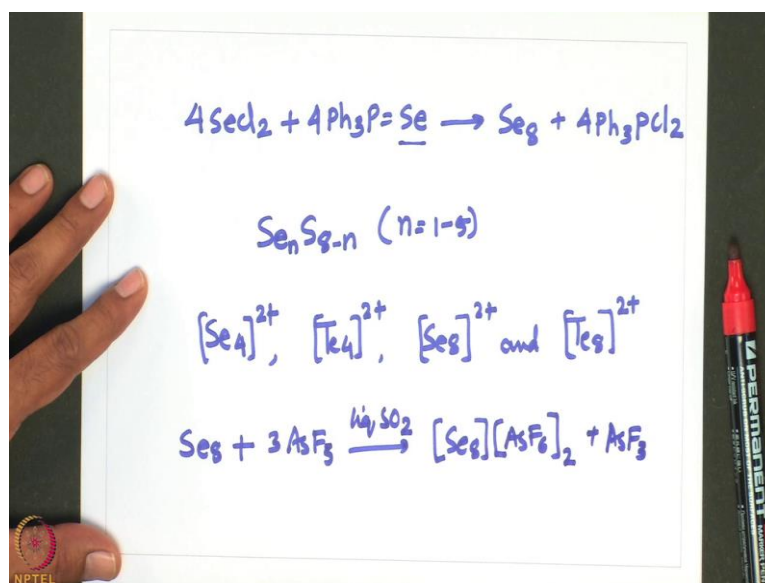 4SeCl₂ + 4Ph₃P=Se → Se₈ + 4Ph₃PCl₂
SeₙS₈₋ₙ (n=1-5)
[Se₄]²⁺, [Te₄]²⁺, [Se₈]²⁺ and [Te₈]²⁺
Se₈ + 3AsF₅ liq SO₂ → [Se₈][AsF₆]₂ + AsF₃
PERMANENT
NPTEL